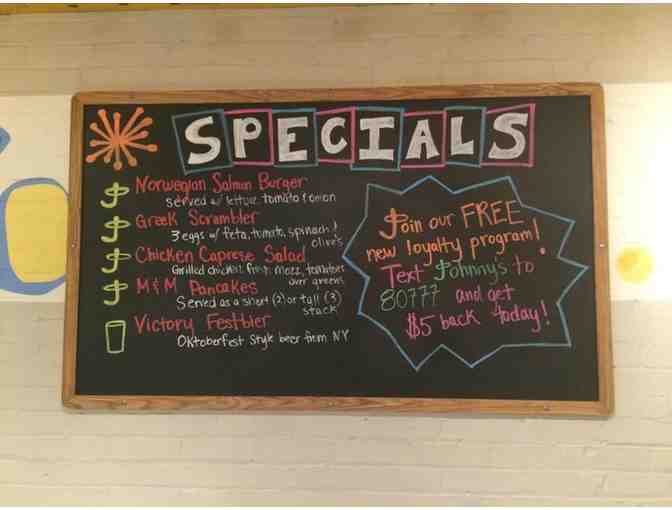 SPECIALS
Norwegian Salmon Burger
served w/ lettuce, tomato & onion
Greek Scrambler
3 eggs w/ feta, tomato, spinach &
olives
Chicken Caprese Salad
Grilled chicken, fresh mozz, tomatoes
over greens
M&M Pancakes
Served as a short (2) or tall (3)
stack
Victory Festbier
Oktoberfest Style beer from NY
Join our FREE
new loyalty program!
Text Johnny's to
80777 and get
$5 back today!